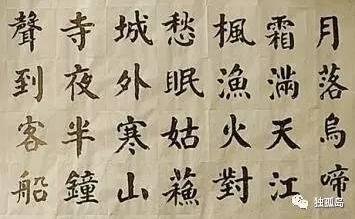 月落烏啼
霜滿天江
楓漁火對
愁眠姑蘇
城外寒山
寺夜半鐘
聲到客船
独孤岛